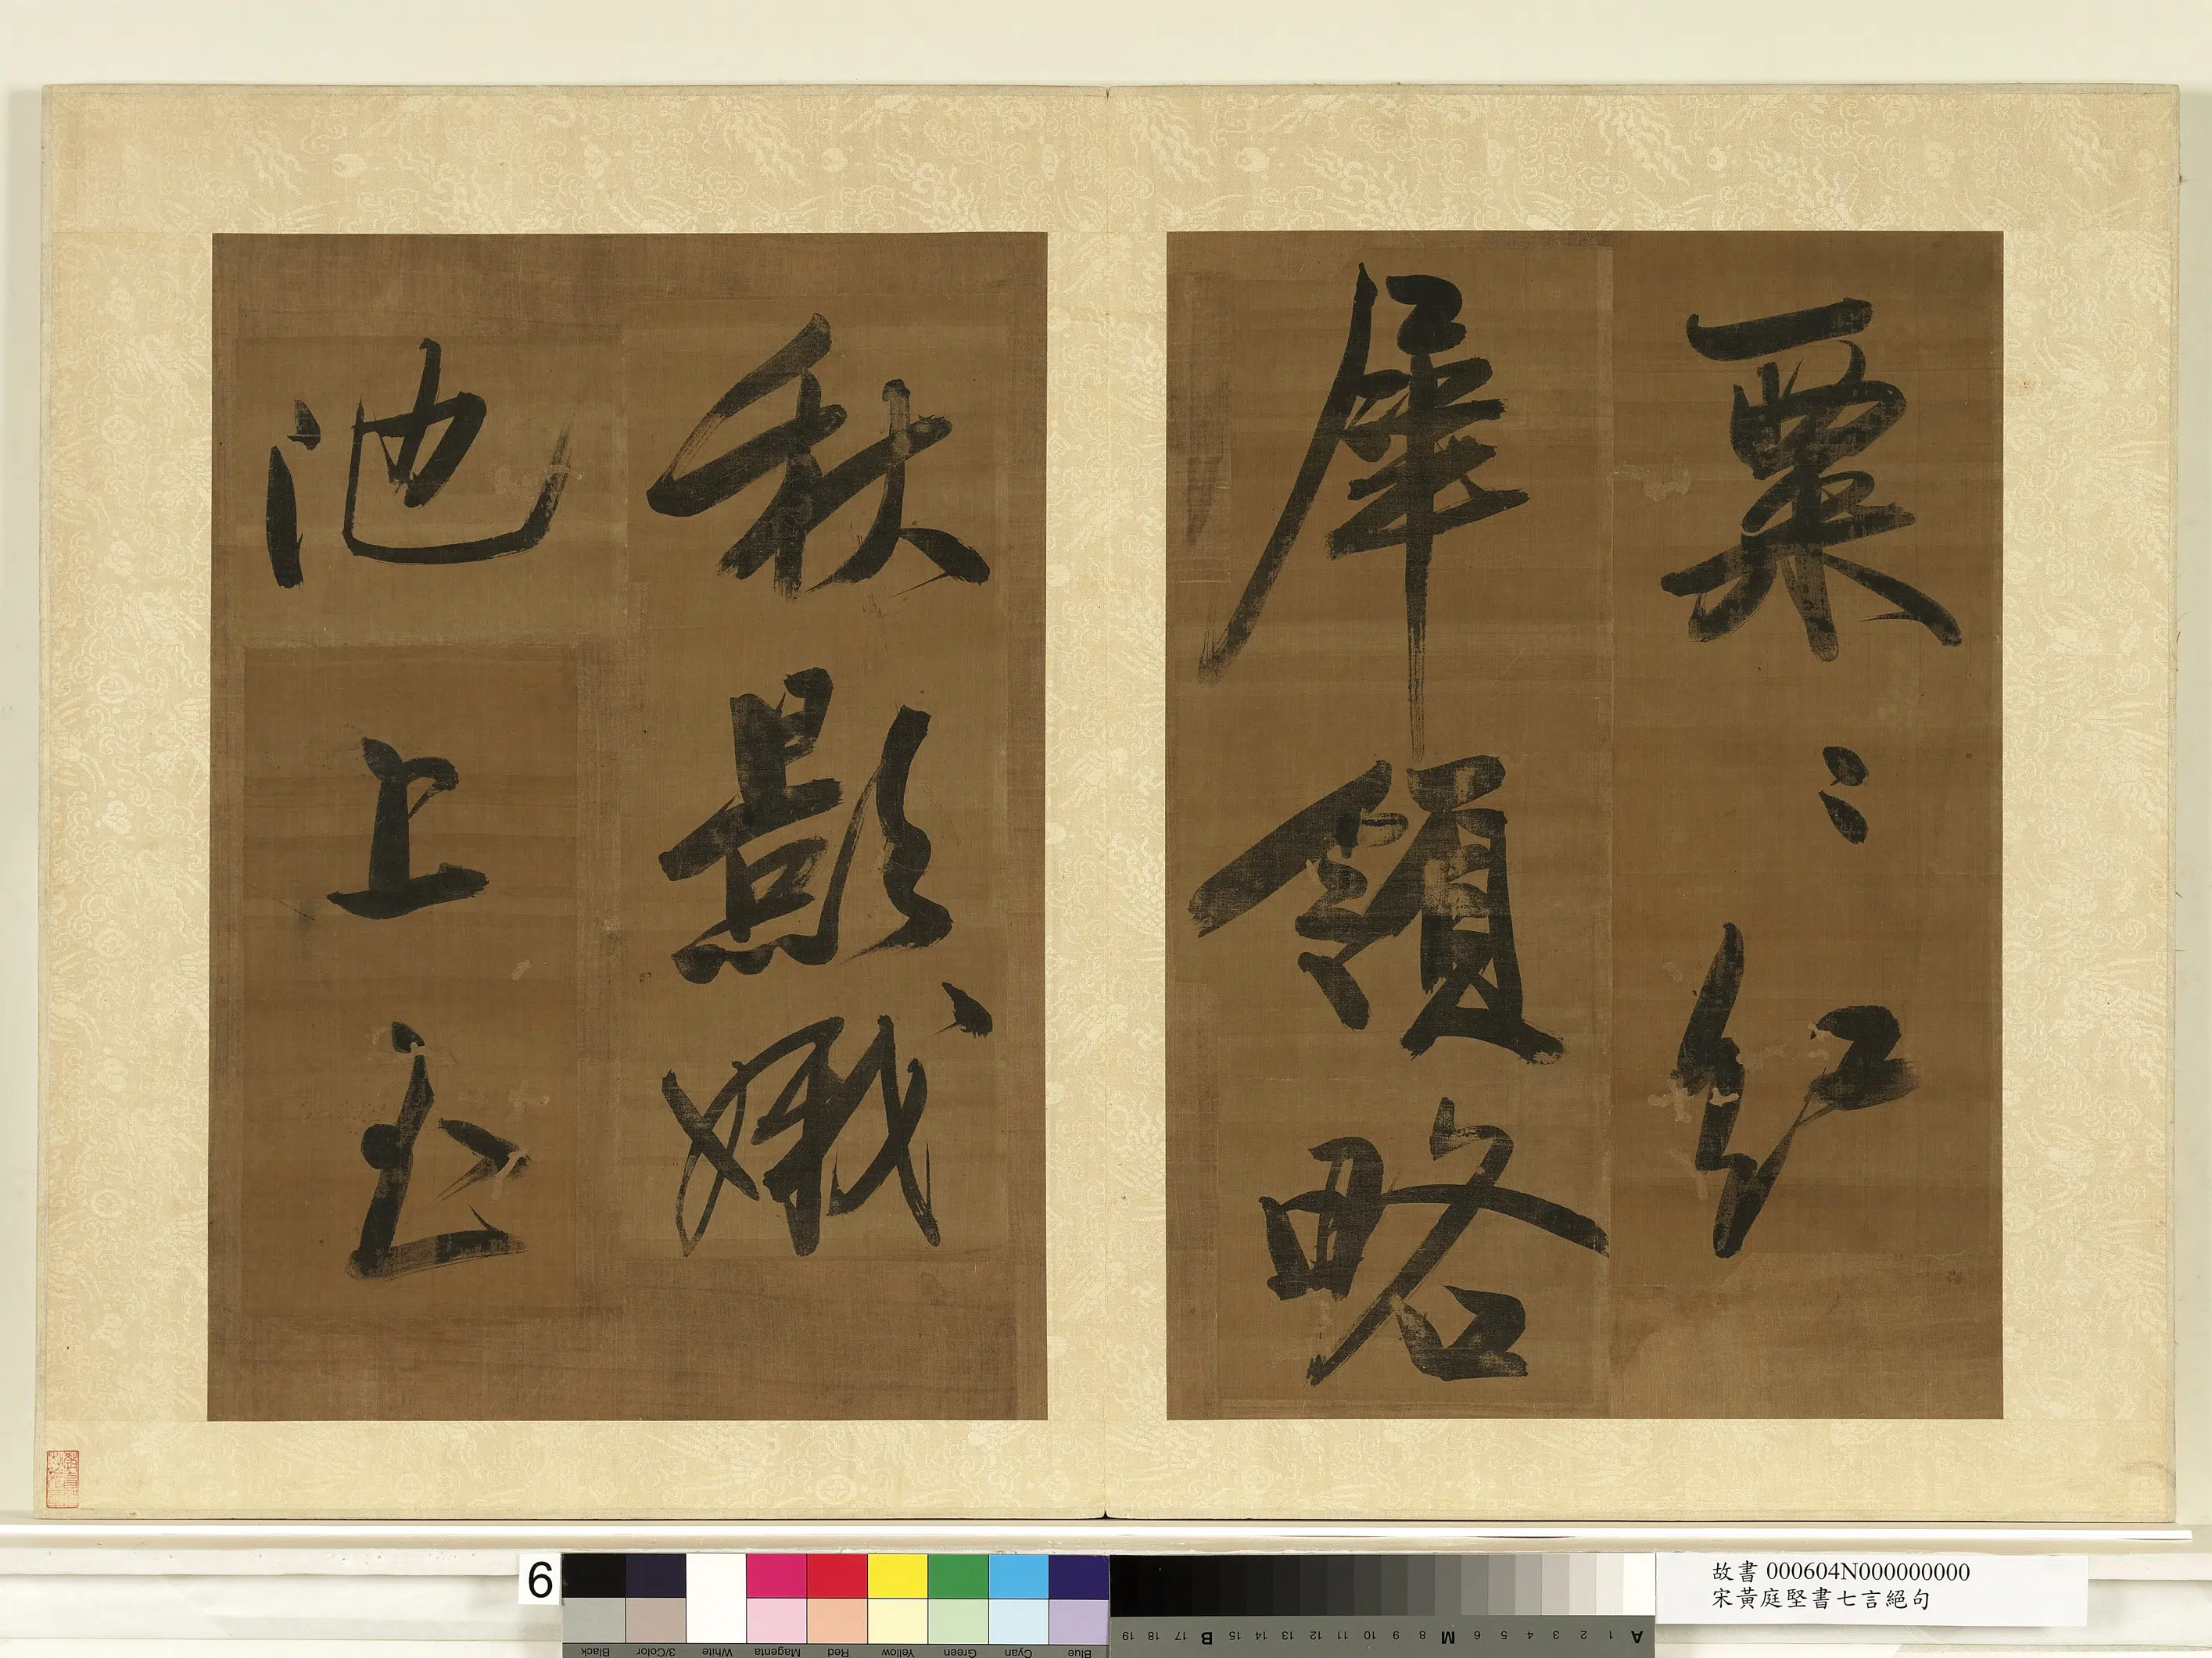 粟〻紅
犀領略
秋影娥
池上
6
Blue Cyan Green Yellow Red Magenta White 3/Color Black
A 1 2 3 4 5 6 M 8 9 10 11 12 13 14 15 B 17 18 19
故書 000604N000000000
宋黃庭堅書七言絕句